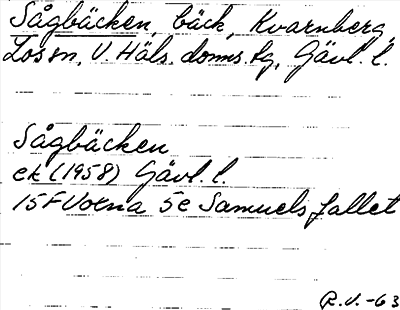 Sågbäcken, bäck, Kvarnberg,
Los sn, V. Häls. doms. fg, Gävl. l.
Sågbäcken
ek (1958) Gävl. l.
15F Voxna 5e Samuelsfallet
R.V.-63